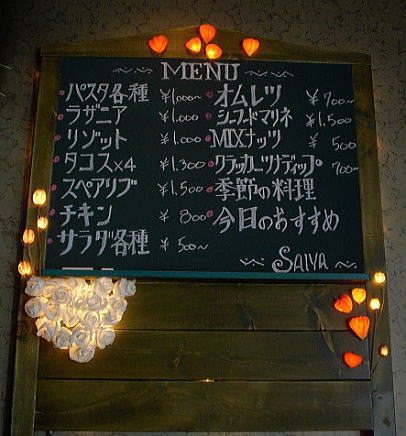 MENU
パスタ各種 ¥1,000~
ラザニア ¥1,000
リゾット ¥1,000
タコス×4 ¥1,300
スペアリブ ¥1,500
チキン ¥800
サラダ各種 ¥500~
オムレツ ¥700~
シーフードマリネ ¥1,500
MIXナッツ ¥500
クラッカーツナディップ 700~
季節の料理
今日のおすすめ
SAIYA